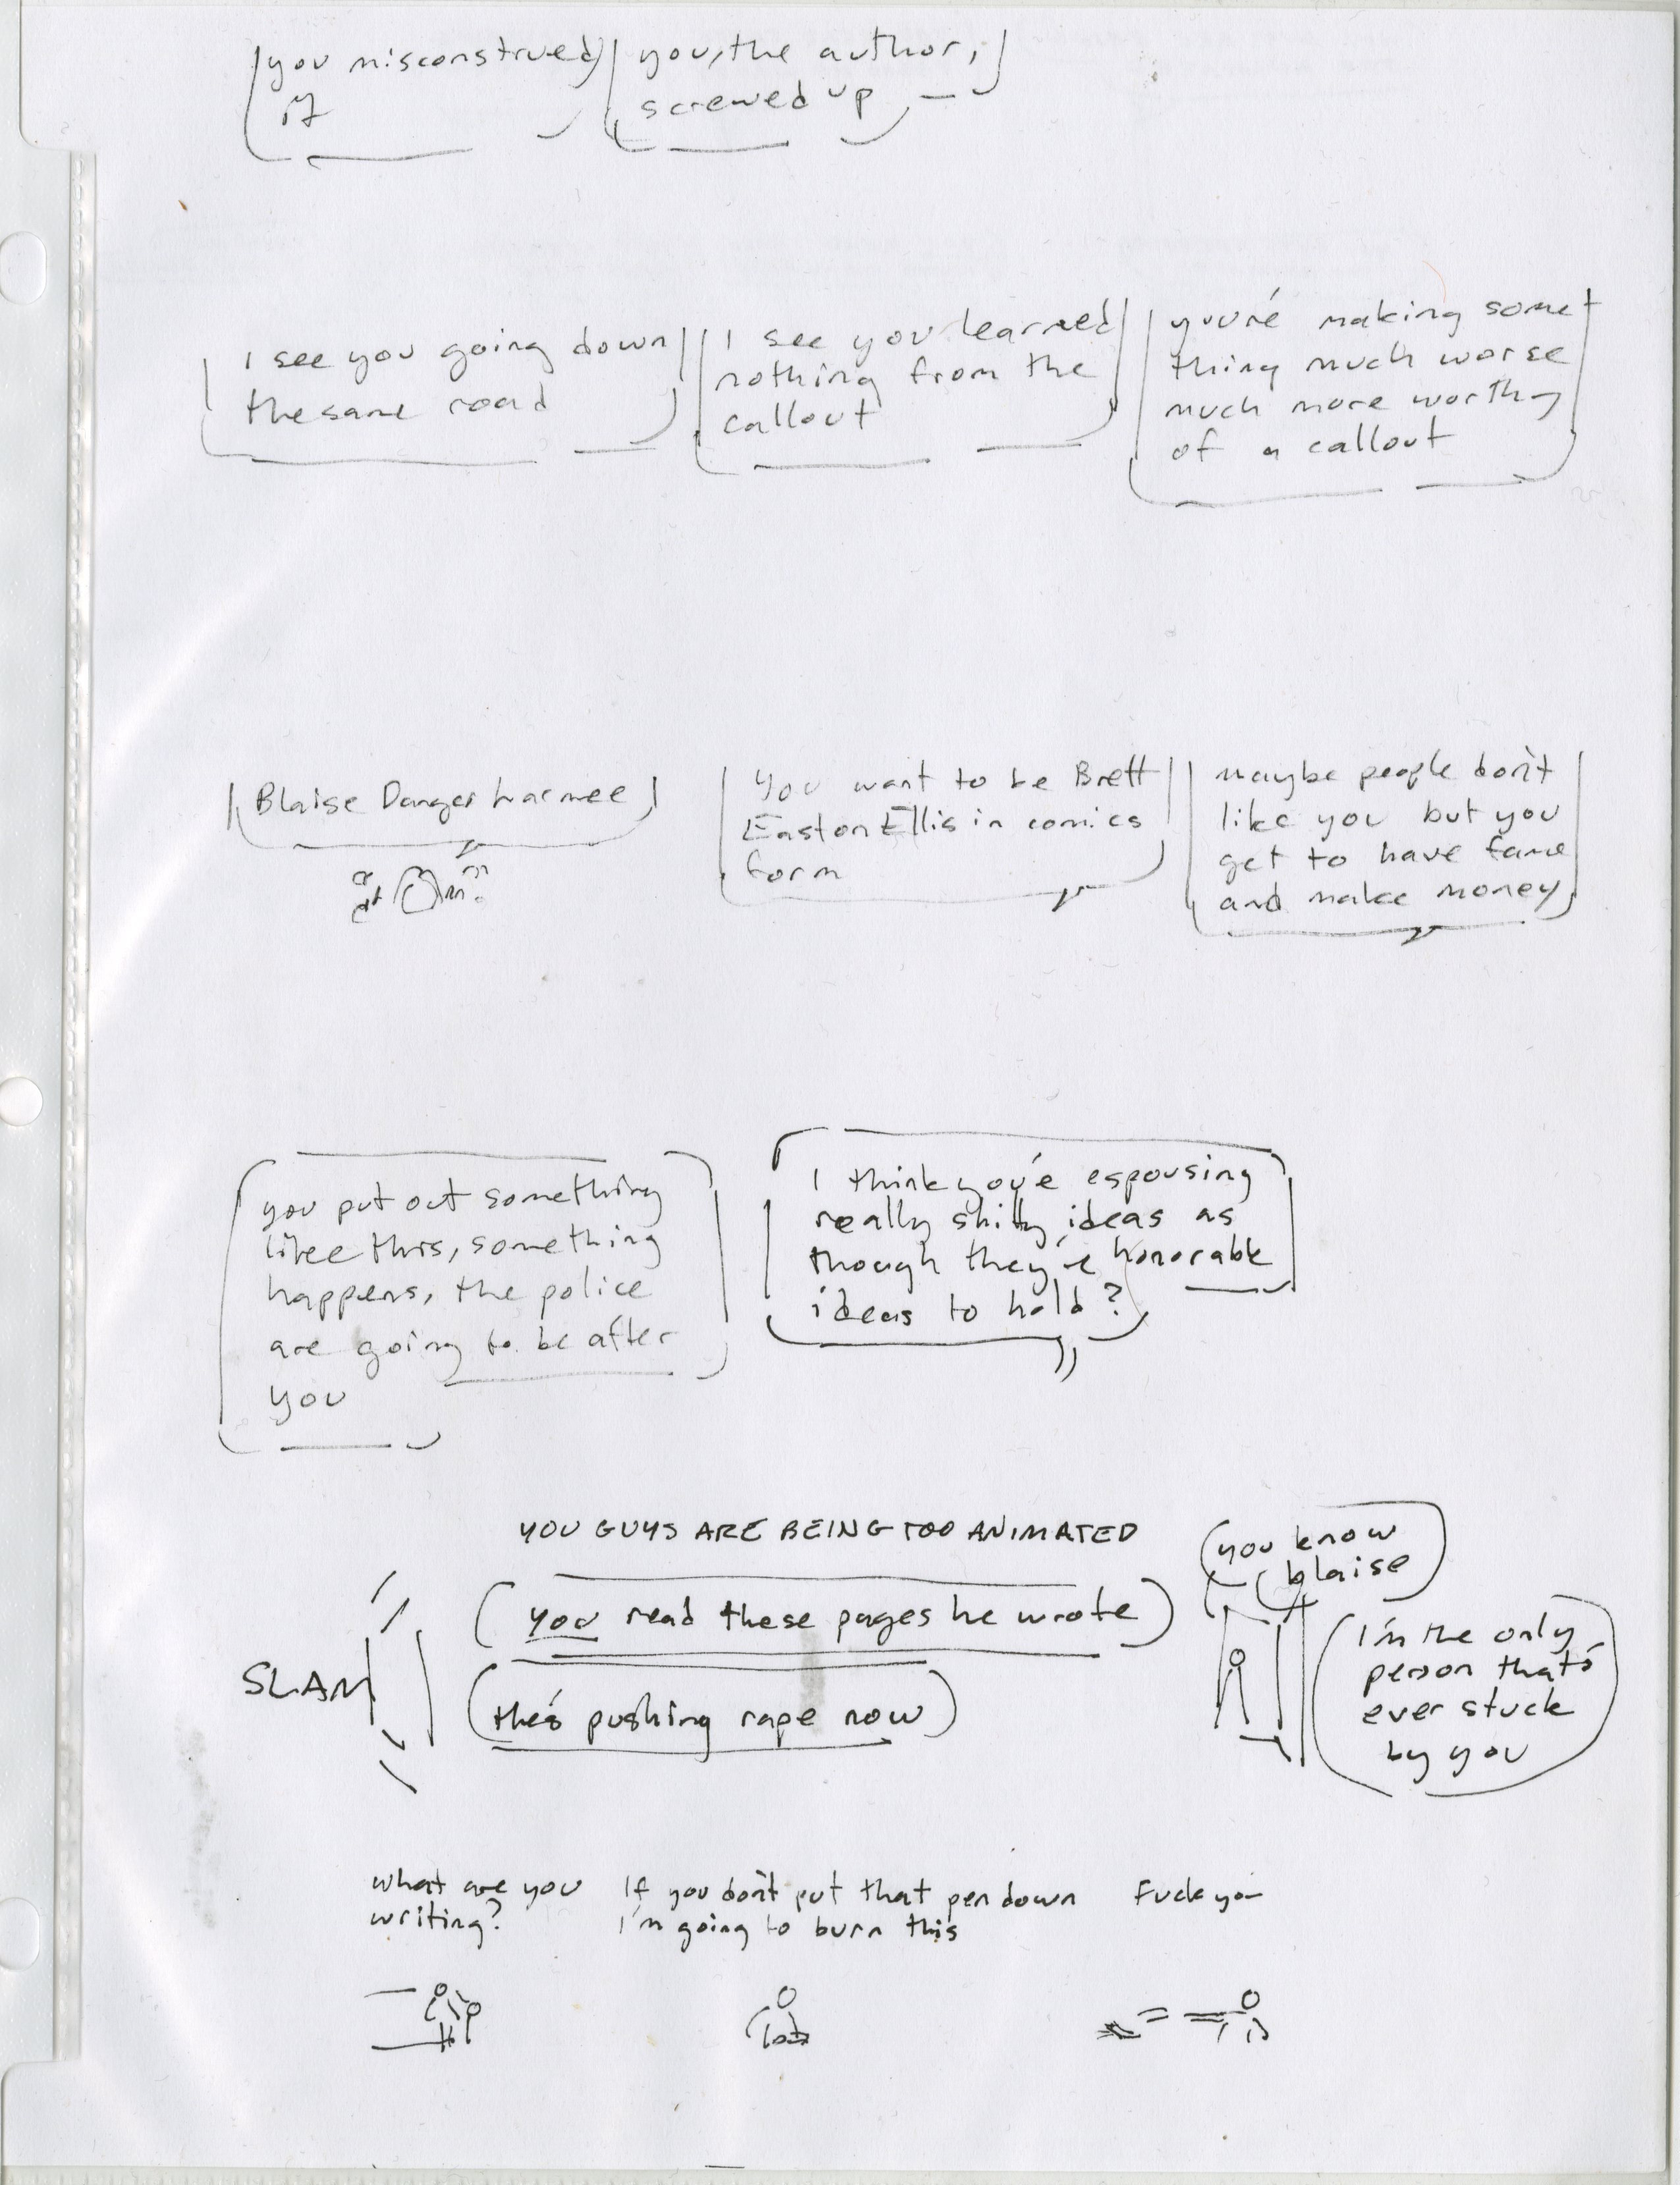 you misconstrued
it
you, the author,
screwed up
I see you going down
the same road
I see you learned
nothing from the
callout
you're making some
thing much worse
much more worthy
of a callout
Blaise Danger Larmee
You want to be Brett
Easton Ellis in comics
form
maybe people don't
like you but you
get to have fame
and make money
you put out something
like this, something
happens, the police
are going to be after
you
I think you're espousing
really shitty ideas as
though they're honorable
ideas to hold?
YOU GUYS ARE BEING TOO ANIMATED
you read these pages he wrote
SLAM
he's pushing rape now
you know
blaise
I'm the only
person that's
ever stuck
by you
what are you
writing?
If you don't put that pen down
I'm going to burn this
Fuck you